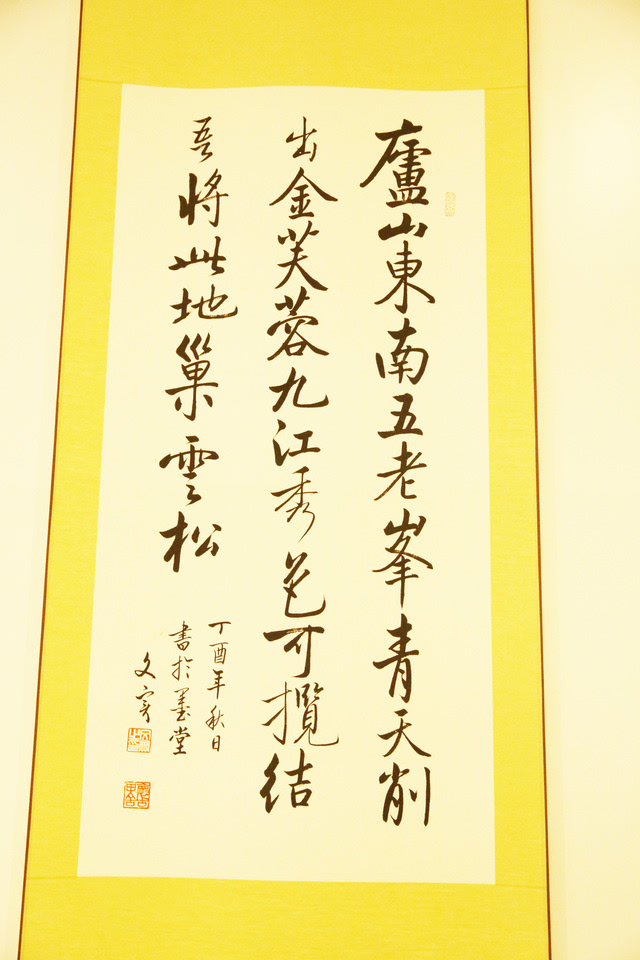 廬山東南五老峯青天削
出金芙蓉九江秀色可攬結
吾將此地巢雲松
丁酉年秋日
書於墨堂
文